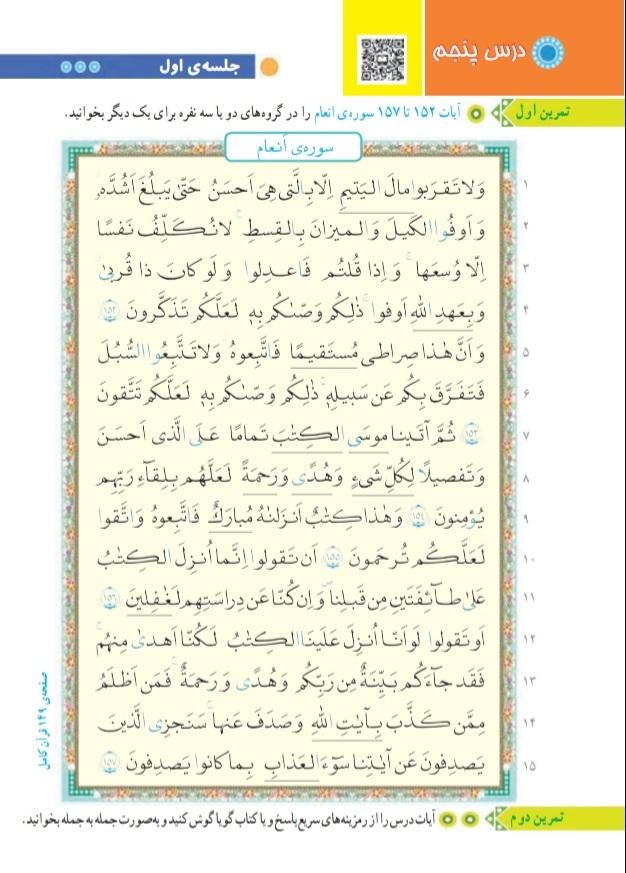 درس پنجم
جلسه‌ی اول
تمرین اول
آیات ۱۵۲ تا ۱۵۷ سوره‌ی انعام را در گروه‌های دو یا سه نفره برای یک دیگر بخوانید.
سوره‌ی اَنعام
۱ وَلا تَقرَبوا مالَ اليَتيمِ اِلّا بِالَّتى هِىَ اَحسَنُ حَتّىٰ يَبلُغَ اَشُدَّهُ
۲ وَ اَوفُوا الكَيلَ وَ الميزانَ بِالقِسطِ ۖ لا نُكَلِّفُ نَفسًا
۳ اِلّا وُسعَها ۖ وَ اِذا قُلتُم فَاعدِلوا وَ لَو كانَ ذا قُربىٰ ۖ
۴ وَ بِعَهدِ اللّٰهِ اَوفوا ۚ ذٰلِكُم وَصّىٰكُم بِهٖ لَعَلَّكُم تَذَكَّرونَ ۱۵۲
۵ وَ اَنَّ هٰذا صِراطى مُستَقيمًا فَاتَّبِعوهُ وَ لا تَتَّبِعُوا السُّبُلَ
۶ فَتَفَرَّقَ بِكُم عَن سَبيلِهٖ ۚ ذٰلِكُم وَصّىٰكُم بِهٖ لَعَلَّكُم تَتَّقونَ
۷ ۱۵۳ ثُمَّ آتَينا موسَى الكِتٰبَ تَمامًا عَلَى الَّذى اَحسَنَ
۸ وَ تَفصيلًا لِكُلِّ شَىءٍ وَ هُدًى وَ رَحمَةً لَعَلَّهُم بِلِقاءِ رَبِّهِم
۹ يُؤمِنونَ ۱۵۴ وَ هٰذا كِتٰبٌ اَنزَلنٰهُ مُبارَكٌ فَاتَّبِعوهُ وَ اتَّقوا
۱۰ لَعَلَّكُم تُرحَمونَ ۱۵۵ اَن تَقولوا اِنَّما اُنزِلَ الكِتٰبُ
۱۱ عَلىٰ طائِفَتَينِ مِن قَبلِنا وَ اِن كُنّا عَن دِراسَتِهِم لَغٰفِلينَ ۱۵۶
۱۲ اَو تَقولوا لَو اَنّا اُنزِلَ عَلَينَا الكِتٰبُ لَكُنّا اَهدىٰ مِنهُم ۚ
۱۳ فَقَد جاءَكُم بَيِّنَةٌ مِن رَبِّكُم وَ هُدًى وَ رَحمَةٌ ۚ فَمَن اَظلَمُ
۱۴ مِمَّن كَذَّبَ بِآيٰتِ اللّٰهِ وَ صَدَفَ عَنها ۗ سَنَجزِى الَّذينَ
۱۵ يَصدِفونَ عَن آيٰتِنا سوءَ العَذابِ بِما كانوا يَصدِفونَ ۱۵۷
صفحه‌ی ۱۴۹ قرآن کامل
تمرین دوم
آیات درس را از رمزینه‌های سریع پاسخ و یا کتاب گویا گوش کنید و به‌صورت جمله به جمله بخوانید.